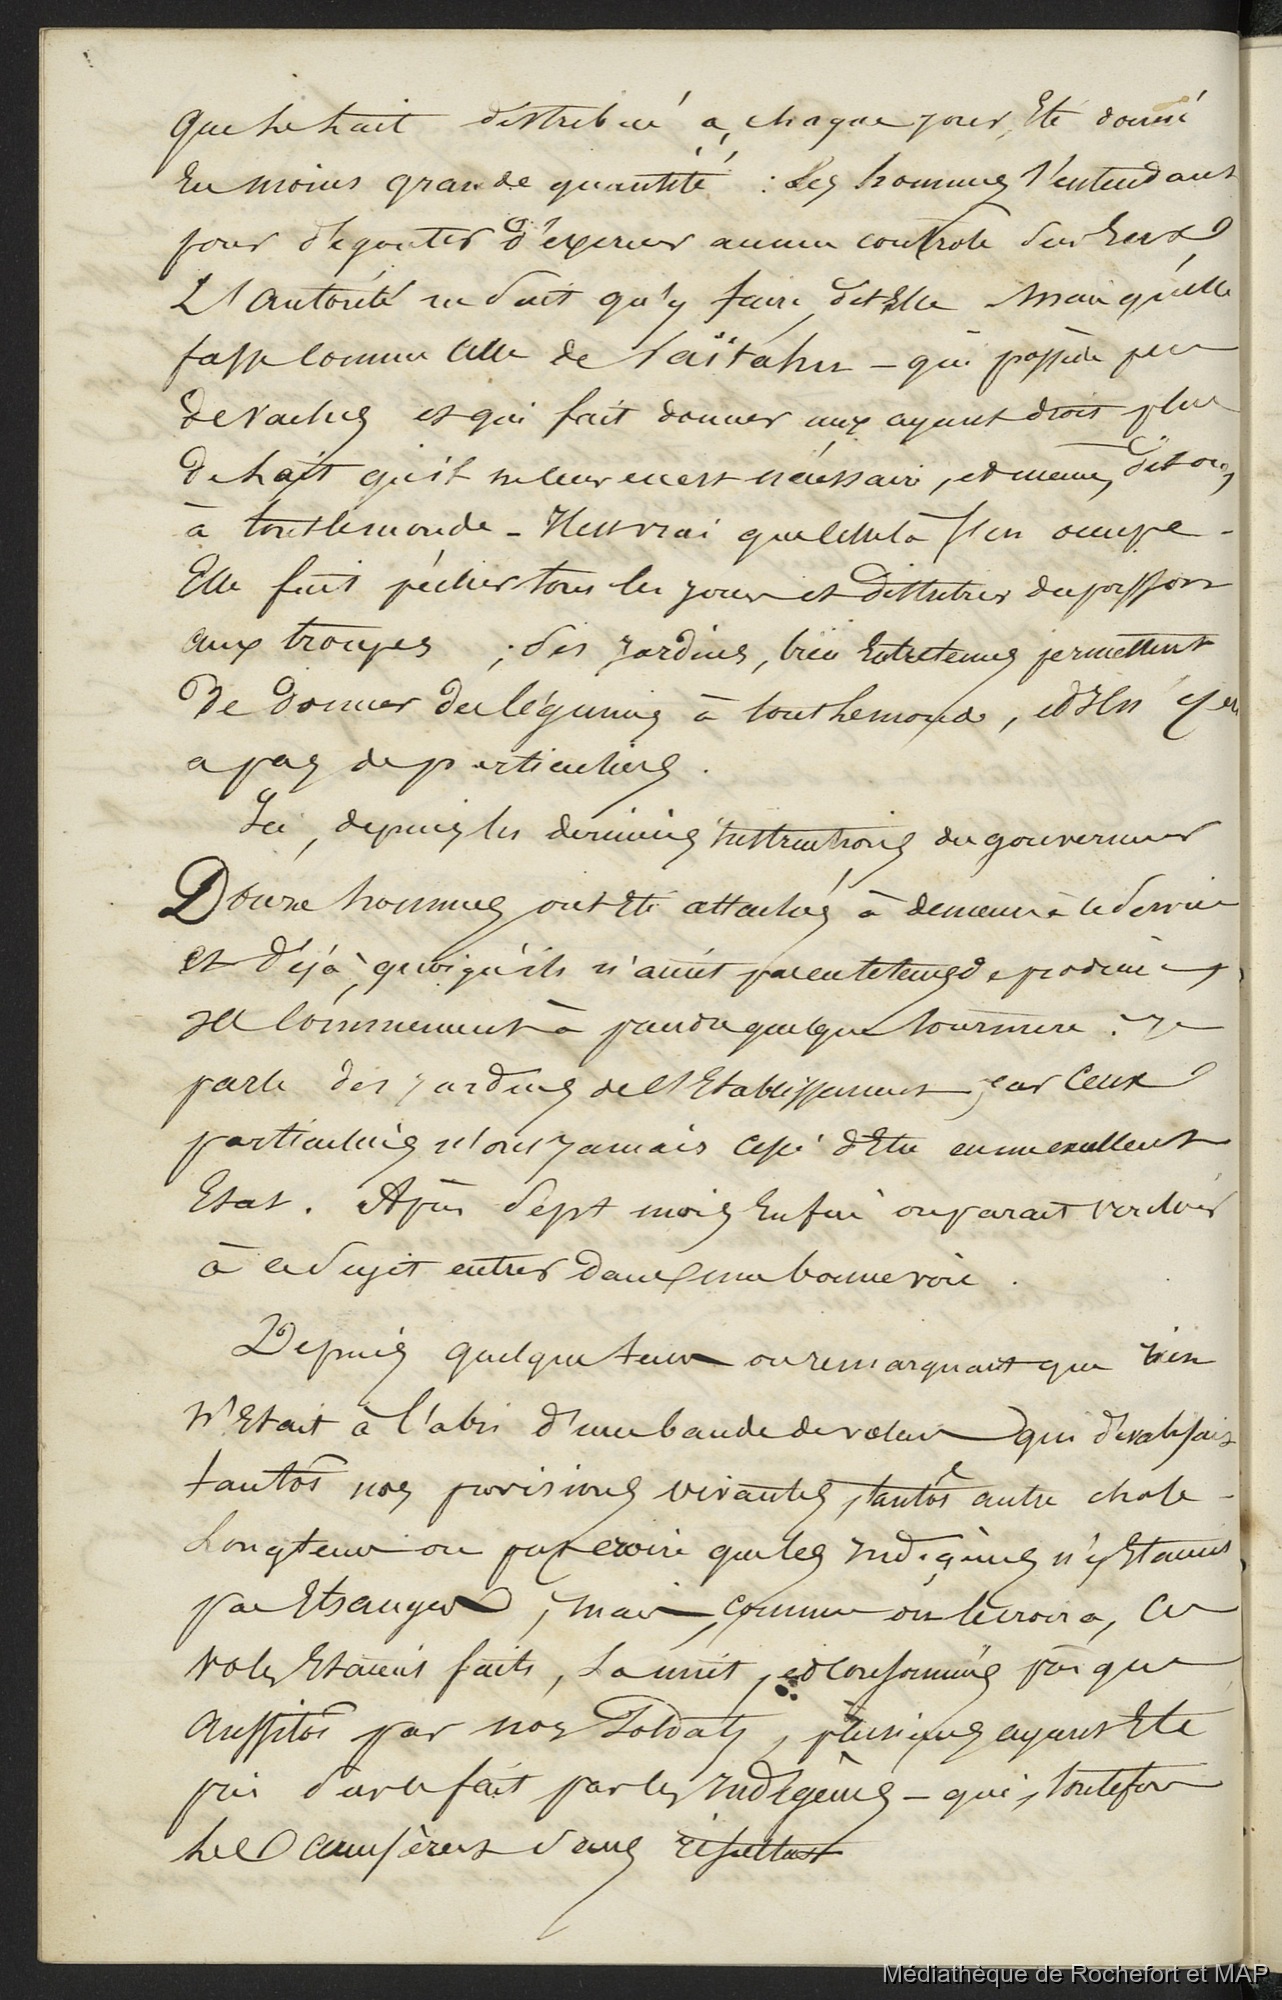 que le lait distribué à chaque jour, Eté donné
En moins grande quantité : Les hommes s'entendant
pour dégouter d'exercer aucun controle sur Eux
L'Autorité ne sait qu'y faire, dit Elle Mais qu'elle
fasse comme celle de Taïtahu - qui possède peu
de vaches et qui fait donner aux ayant droit plus
de lait qu'il ne leur en est nécessaire, et même, dit on,
à tout le monde - Il est vrai que celle là s'en occupe -
Elle fait pêcher tous les jours et distribuer du poisson
aux troupes ; des jardins, bien Entretenus permettent
de donner des légumes à tout le monde, et Il n'y en
a pas de particuliers.
Ici, depuis les dernières instructions du gouverneur
Douze hommes ont Eté attachés à demeure à ce service
et déjà, quoiqu'ils n'aient pas eu le tems de produire,
Ils commencent à prendre quelque tournure : Je
parle des jardins de l'Etablissement, car Ceux
particuliers n'ont jamais cessé d'Etre en un excellent
Etat. Après sept mois Enfin on parait vouloir
à ce sujet entrer dans une bonne voie.
Depuis quelque tems on remarquait que rien
n'Etait à l'abri d'une bande de voleurs qui dévalisait
tantôt nos provisions vivantes, tantôt autre chose -
Longtems on put croire que les Indigènes n'y Etaient
pas Etrangers ; mais, comme on le croira, Ces
vols Etaient faits, La nuit, et consommés presque
Aussitôt par nos Soldats, plusieurs ayant Eté
pris sur le fait par les Indigènes - qui, toutefois
les dans résultat
Médiathèque de Rochefort et MAP